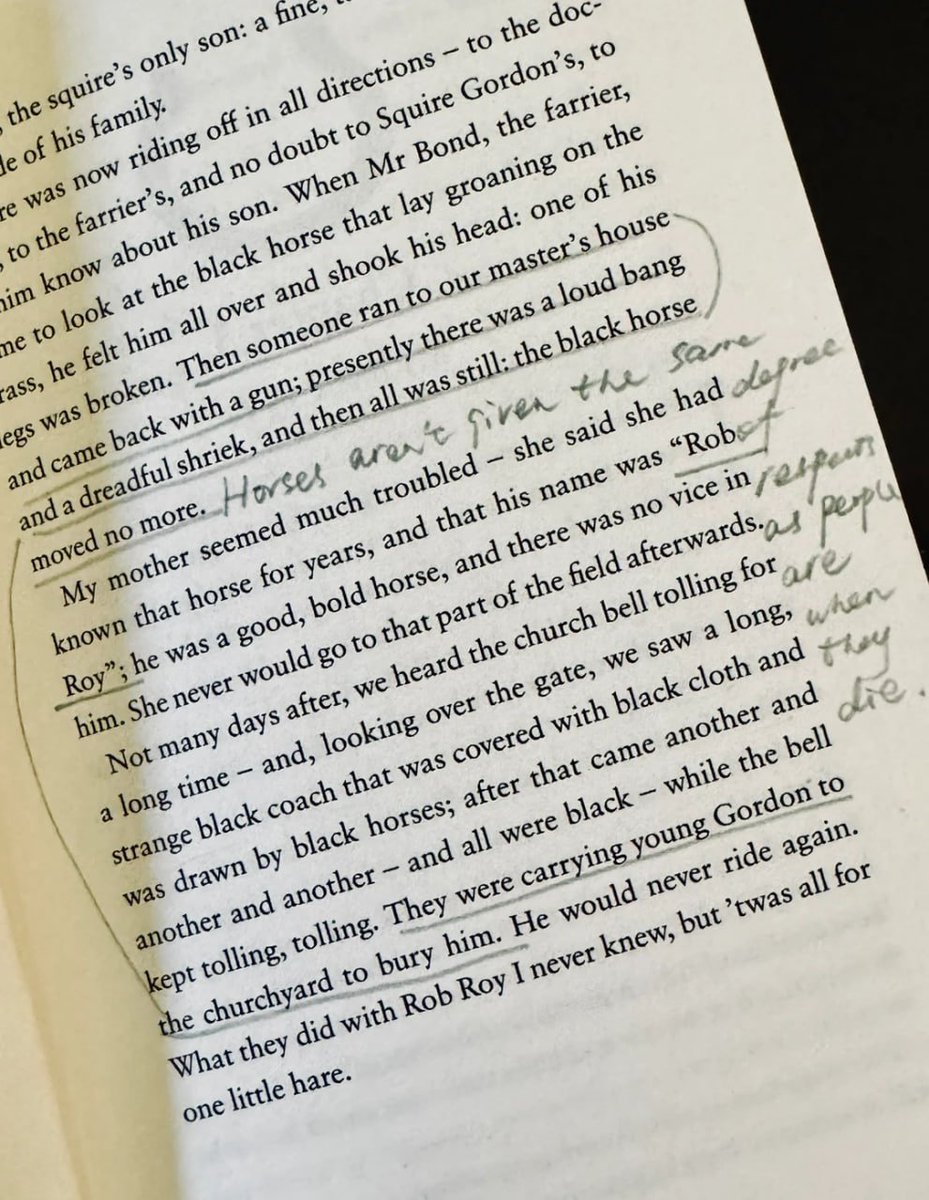 , the squire's only son: a fine,
of his family.
was now riding off in all directions – to the doc-
, to the farrier's, and no doubt to Squire Gordon's, to
him know about his son. When Mr Bond, the farrier,
to look at the black horse that lay groaning on the
he felt him all over and shook his head: one of his
legs was broken. Then someone ran to our master's house
and came back with a gun; presently there was a loud bang
and a dreadful shriek, and then all was still: the black horse
moved no more.
Horses aren't given the same
degree
of
respect
as people
are
when
they
die.
My mother seemed much troubled – she said she had
known that horse for years, and that his name was “Rob
Roy”; he was a good, bold horse, and there was no vice in
him. She never would go to that part of the field afterwards.
Not many days after, we heard the church bell tolling for
a long time – and, looking over the gate, we saw a long,
strange black coach that was covered with black cloth and
was drawn by black horses; after that came another and
another and another – and all were black – while the bell
kept tolling, tolling. They were carrying young Gordon to
the churchyard to bury him. He would never ride again.
What they did with Rob Roy I never knew, but ’twas all for
one little hare.